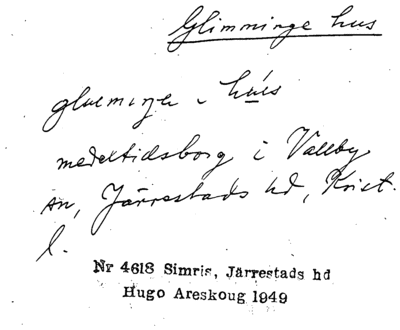 Glimminge hus
hús
medeltidsborg i Vallby
sn, Järrestads hd, Krist.
l.
Nr 4618 Simris, Järrestads hd
Hugo Areskoug 1949